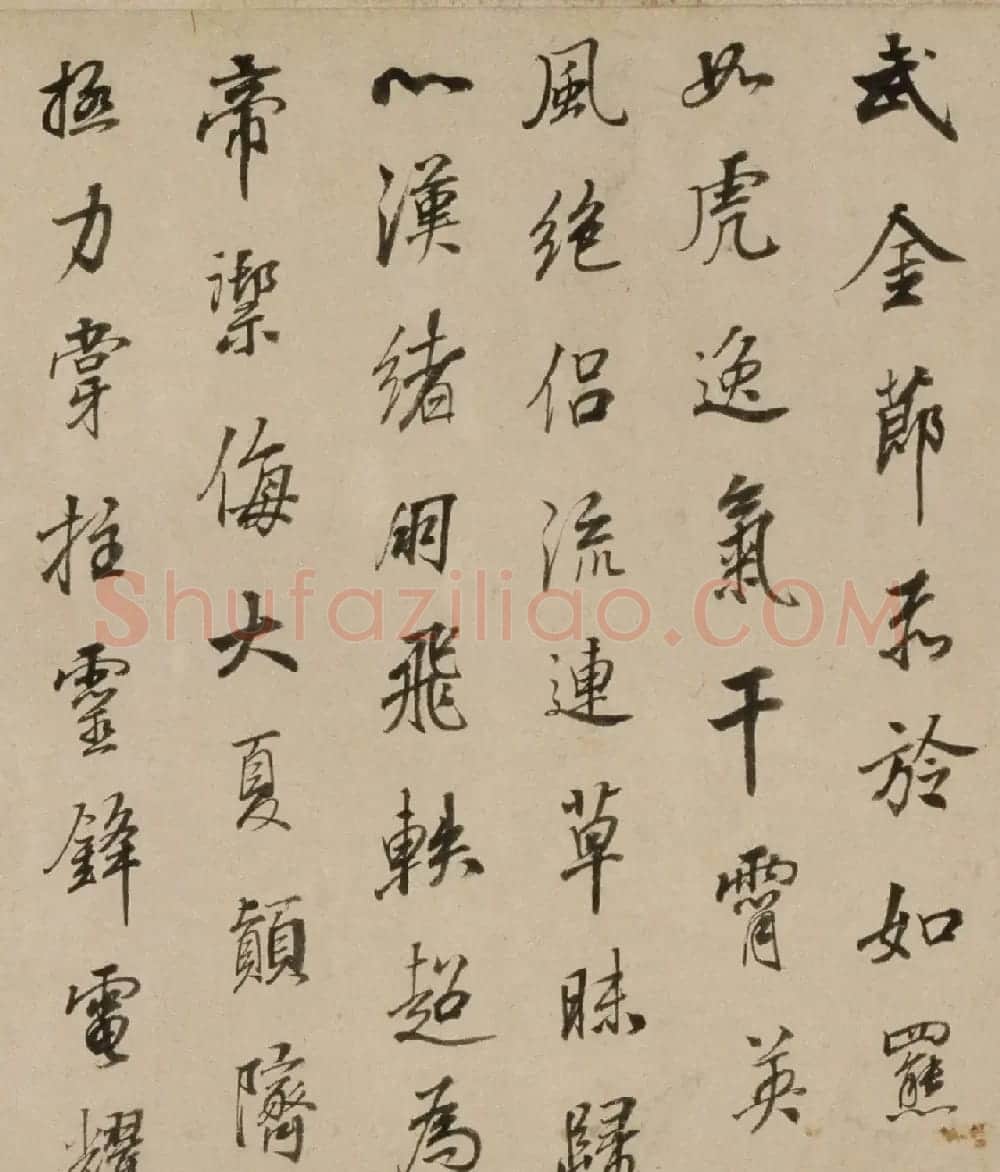 武金節赤旍如羆
如虎逸氣干霄英
風絕侶流連草昧歸
心漢緒朋飛軼超為
帝禦侮大夏顛隮
極力牚拄靈鋒電耀
Shufaziliao.COM